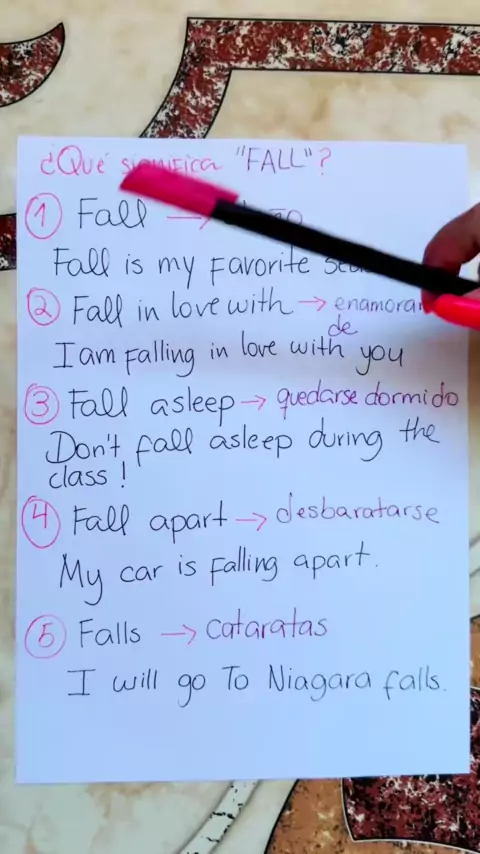 ¿Qué significa "FALL"?
1 Fall →
Fall is my favorite
2 Fall in love with → enamorar
de
I am falling in love with you
3 Fall asleep → quedarse dormido
Don't fall asleep during the
class!
4 Fall apart → desbaratarse
My car is falling apart.
5 Falls → cataratas
I will go To Niagara falls.